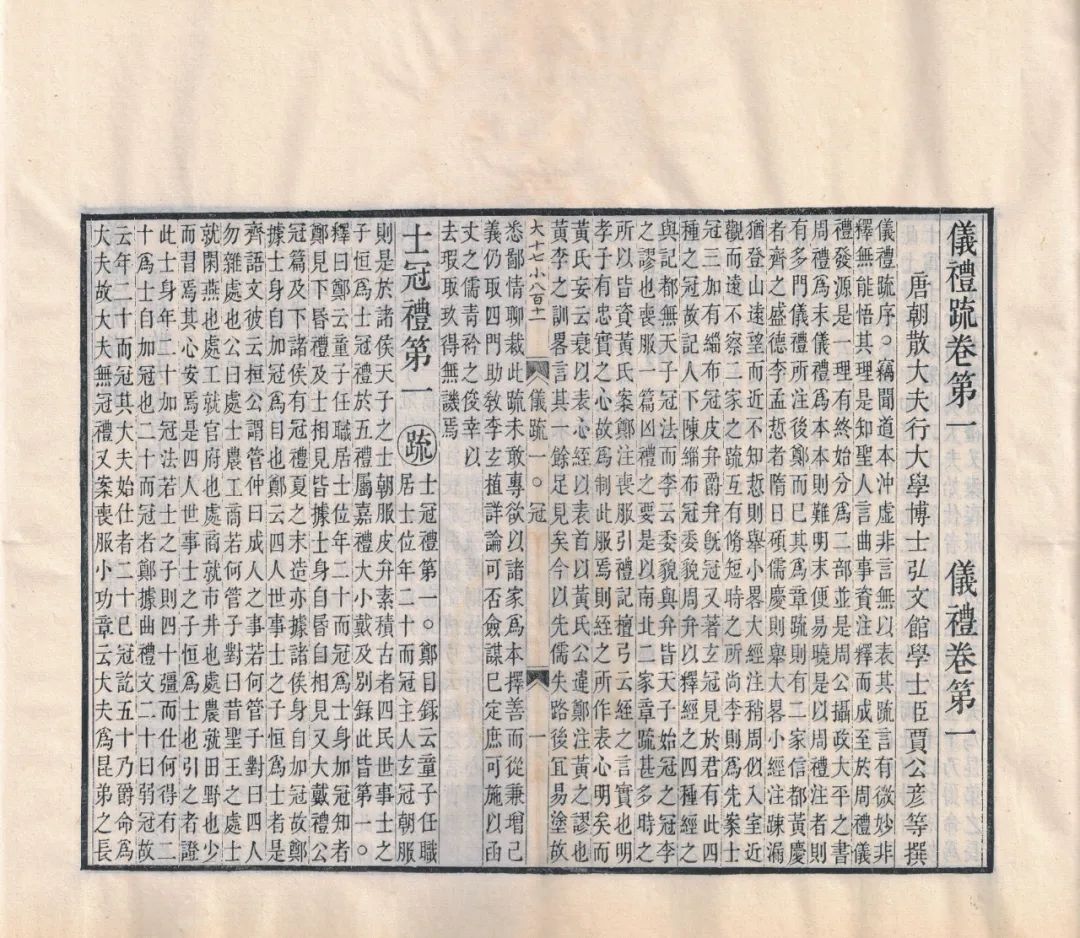 儀禮䟽卷第一　儀禮卷第一
唐朝散大夫行大學博士弘文館學士臣賈公彦等撰
儀禮䟽序○竊聞道本沖虛非言無以表其䟽言有微妙非
釋無能悟其理是知聖人言曲事資注釋而成至於周禮儀
禮發源是一理有終始分爲二部並是周公攝政大平之書
周禮爲末儀禮爲本本則難明末便易曉是以周禮注者則
有多門儀禮所注後鄭而已其爲章䟽則有二家信都黃慶
者齊之盛德李孟悊者隋日碩儒慶則舉大畧小經注踈漏
猶登山遠望而近不知悊則舉小畧大經注稍周似入室近
觀而遠不察二家之䟽互有脩短時之所尚李則爲先案士
冠三加有緇布冠皮弁爵弁旣冠又著玄冠見於君有此四
種之冠故記人下陳緇布冠委貌周弁以釋經之四種經之
與記都無天子冠法而李云委貌與弁皆天子始冠之冠李
之謬也喪服一篇凶禮之要是以南北二家章䟽甚多時之
所以皆資黃氏案鄭注喪服引禮記檀弓云絰之言實也明
孝子有忠實之心故爲制此服焉則絰之所作表心明矣而
黃氏妄云衰以表心絰以表首以黃氏公違鄭注黃之謬也
黃李之訓畧言其一餘足見矣今以先儒失路後冝易塗故
大十七小八百十一　儀䟽一○冠　一
悉鄙情聊裁此䟽未敢專欲以諸家爲本擇善而從兼增己
義仍取四門助敎李玄植詳論可否僉謀已定庶可施以函
丈之儒青衿之俊幸以
去瑕取玖得無譏焉
士冠禮第一　䟽　士冠禮第一○鄭目錄云童子任職
居士位年二十而冠主人玄冠朝服
則是於諸侯天子之士朝服皮弁素積古者四民世事士之
子恒爲士冠禮於五禮屬嘉禮大小戴及別錄此皆第一○
釋曰鄭云童子任職居士位年二十而冠爲士身加冠知者
鄭見下昏禮及士相見皆據士身自昏自相見又大戴禮公
冠篇及下諸侯有冠禮夏之末造亦據諸侯身自加冠故鄭
據士身自加冠爲目也鄭云四人世事士之子恒爲士者是
齊語文彼云桓公謂管仲曰成人之事若何管子對曰四人
勿雜處也公曰處士農工商若何管子對曰昔聖王之處士
就閑燕也處工就官府也處商就市井也處農就田野也少
而習焉其心安焉是四人世事士之子恒爲士也引之者證
此士身年二十加冠法若士之子則四十彊而仕何得有二
十爲士自加冠也二十而冠者鄭據曲禮文二十曰弱冠故
云年二十而冠其大夫始仕者二十已冠訖五十乃爵命爲
大夫故大夫無冠禮又案喪服小功章云大夫爲昆弟之長